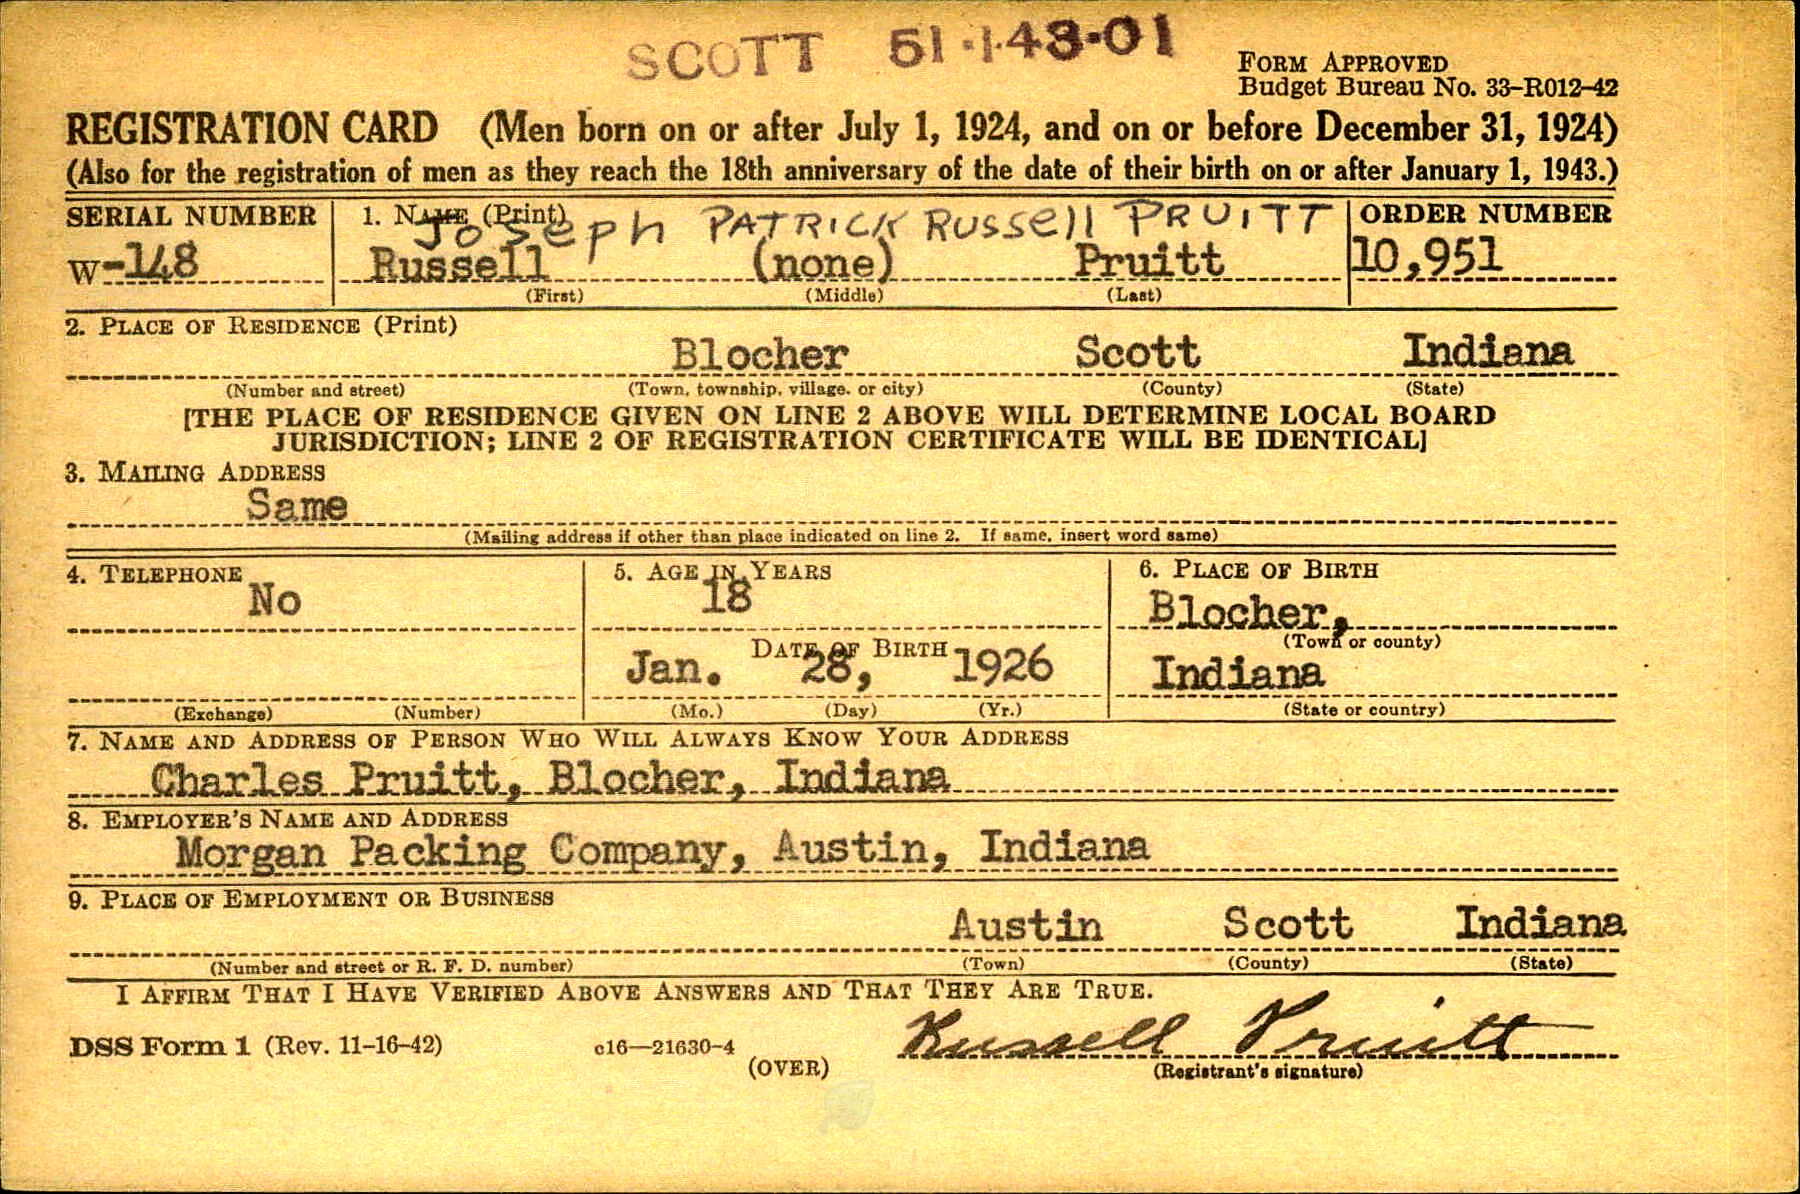 SCOTT 51·143·01
FORM APPROVED
Budget Bureau No. 33–R012–42
REGISTRATION CARD (Men born on or after July 1, 1924, and on or before December 31, 1924)
(Also for the registration of men as they reach the 18th anniversary of the date of their birth on or after January 1, 1943.)
SERIAL NUMBER 1. NAME (Print) ORDER NUMBER
Joseph PATRICK RUSSell PRUITT
W-148 Russell (none) Pruitt 10,951
(First) (Middle) (Last)
2. PLACE OF RESIDENCE (Print)
Blocher Scott Indiana
(Number and street) (Town, township, village, or city) (County) (State)
[THE PLACE OF RESIDENCE GIVEN ON LINE 2 ABOVE WILL DETERMINE LOCAL BOARD
JURISDICTION; LINE 2 OF REGISTRATION CERTIFICATE WILL BE IDENTICAL]
3. MAILING ADDRESS
Same
(Mailing address if other than place indicated on line 2. If same, insert word same)
4. TELEPHONE 5. AGE IN YEARS 6. PLACE OF BIRTH
No 18 Blocher,
DATE OF BIRTH (Town or county)
Jan. 28, 1926 Indiana
(Exchange) (Number) (Mo.) (Day) (Yr.) (State or country)
7. NAME AND ADDRESS OF PERSON WHO WILL ALWAYS KNOW YOUR ADDRESS
Charles Pruitt, Blocher, Indiana
8. EMPLOYER'S NAME AND ADDRESS
Morgan Packing Company, Austin, Indiana
9. PLACE OF EMPLOYMENT OR BUSINESS
Austin Scott Indiana
(Number and street or R. F. D. number) (Town) (County) (State)
I AFFIRM THAT I HAVE VERIFIED ABOVE ANSWERS AND THAT THEY ARE TRUE.
DSS Form 1 (Rev. 11-16-42) c16—21630-4 Russell Pruitt
(OVER) (Registrant's signature)